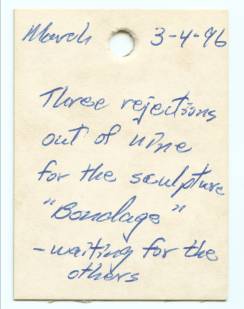 March 3-4-96
Three rejections
out of nine
for the sculpture
"Bondage"
-waiting for the
others